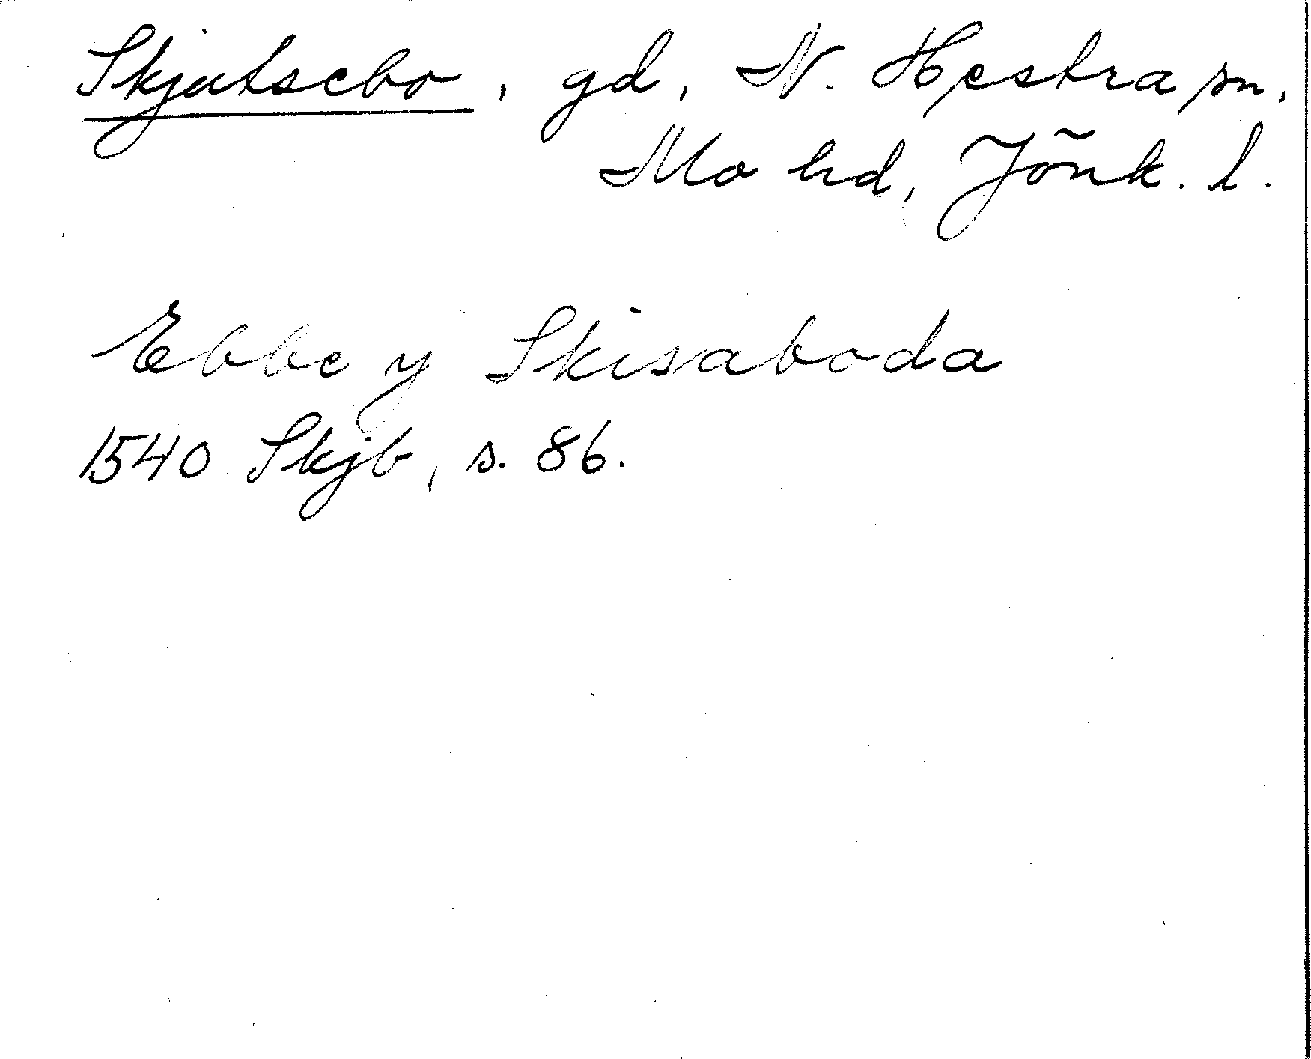 Skjutsebo, gd, N. Hestra sn,
Mo hd, Jönk. l.
Ebbe y Skisaboda
1540 Skjb, s. 86.